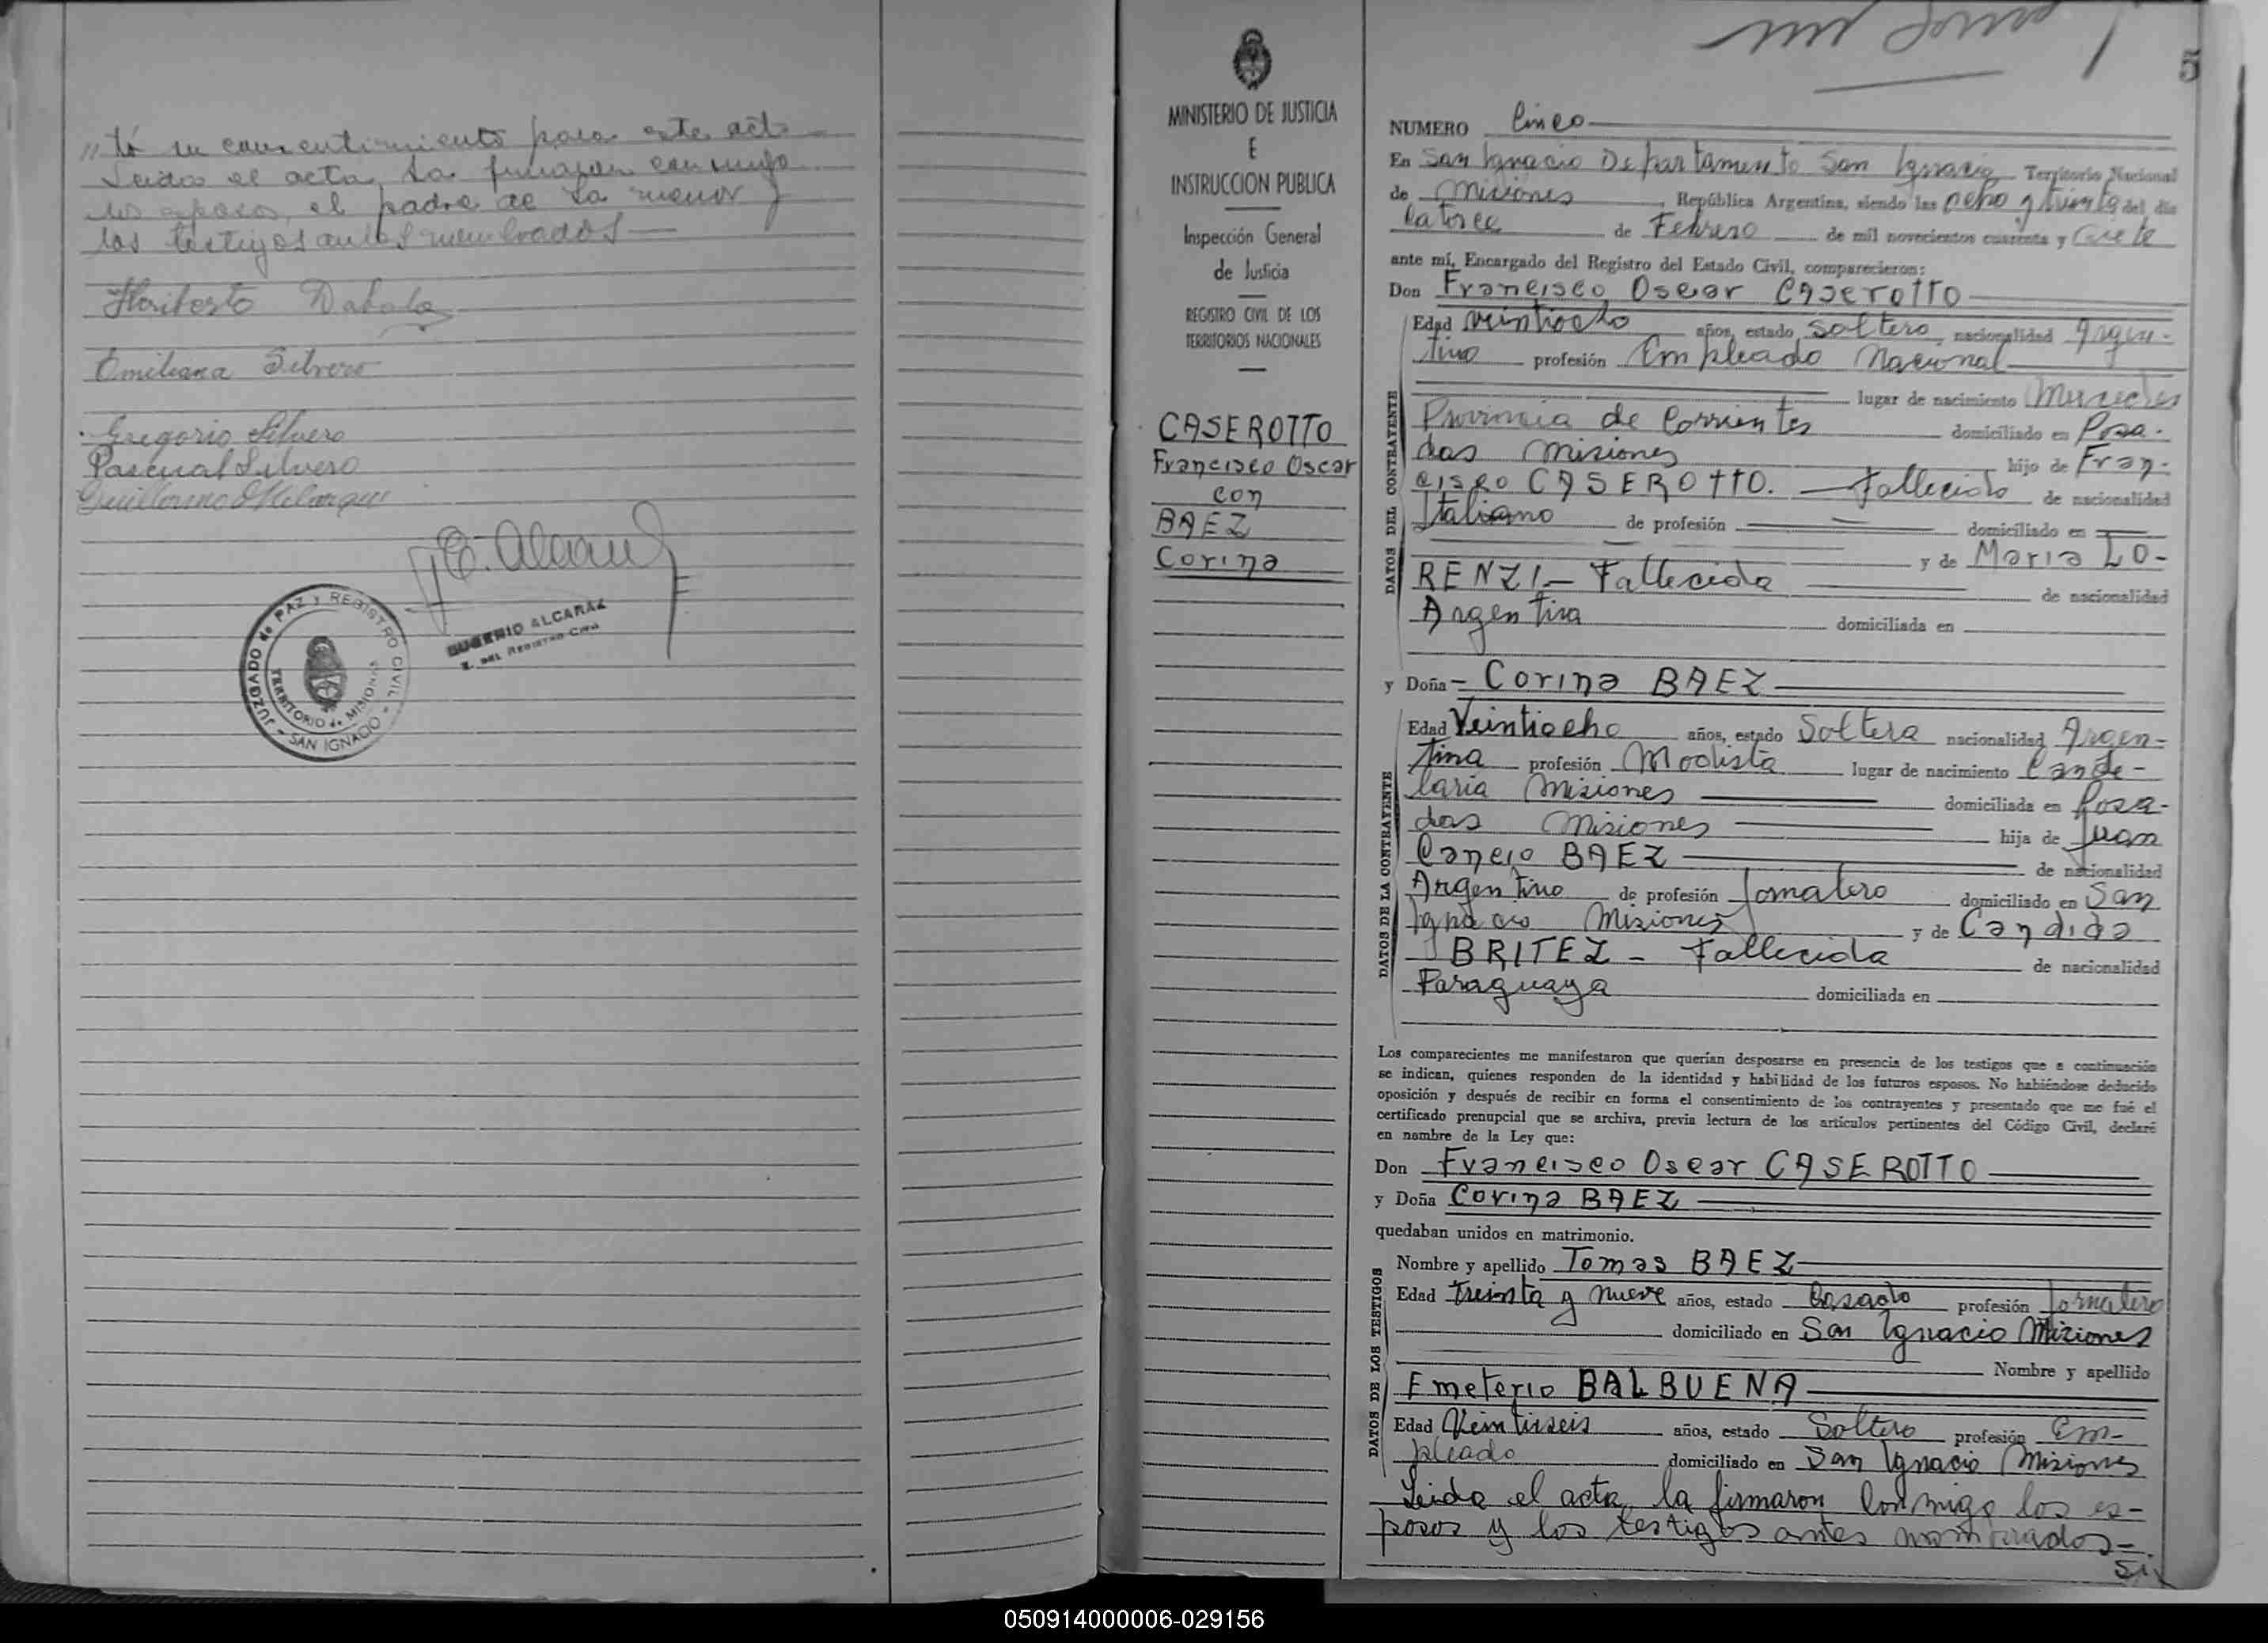 "tó su consentimiento para este acto
Leida el acta, la firmaron conmigo
los esposos, el padre de la menor y
los testigos antes nombrados —
Emiliana Silvero
Gregorio Silvero
Pascual Silvero
Guillermo
E. Alcaraz
EUGENIO ALCARAZ
E. DEL REGISTRO CIVIL
JUZGADO de PAZ y REGISTRO CIVIL
TERRITORIO de MISIONES
- SAN IGNACIO -
MINISTERIO DE JUSTICIA
E
INSTRUCCION PUBLICA
Inspección General
de Justicia
REGISTRO CIVIL DE LOS
TERRITORIOS NACIONALES
CASEROTTO
Francisco Oscar
con
BAEZ
Corina
5
NUMERO Cinco
En San Ignacio Departamento San Ignacio Territorio Nacional
de Misiones, República Argentina, siendo las ocho y treinta del día
Catorce de Febrero de mil novecientos cuarenta y Siete
ante mí, Encargado del Registro del Estado Civil, comparecieron:
Don Francisco Oscar CASEROTTO
DATOS DEL CONTRAYENTE
Edad veintiocho años, estado Soltero, nacionalidad Argen-
tino profesión Empleado Nacional
lugar de nacimiento Mercedes
Provincia de Corrientes domiciliado en Posa-
das Misiones hijo de Fran-
cisco CASEROTTO. — Fallecido de nacionalidad
Italiano de profesión domiciliado en
y de Maria LO-
RENZI — Fallecida de nacionalidad
Argentina domiciliada en
y Doña — Corina BAEZ
DATOS DE LA CONTRAYENTE
Edad Veintiocho años, estado Soltera nacionalidad Argen-
tina profesión Modista lugar de nacimiento Cande-
laria Misiones domiciliada en Posa-
das Misiones hija de Juan
Cancio BAEZ de nacionalidad
Argentino de profesión Jornalero domiciliado en San
Ignacio Misiones y de Candida
BRITEZ - Fallecida de nacionalidad
Paraguaya domiciliada en
Los comparecientes me manifestaron que querían desposarse en presencia de los testigos que a continuación
se indican, quienes responden de la identidad y habilidad de los futuros esposos. No habiéndose deducido
oposición y después de recibir en forma el consentimiento de los contrayentes y presentado que me fué el
certificado prenupcial que se archiva, previa lectura de los artículos pertinentes del Código Civil, declaré
en nombre de la Ley que:
Don Francisco Oscar CASEROTTO
y Doña Corina BAEZ
quedaban unidos en matrimonio.
DATOS DE LOS TESTIGOS
Nombre y apellido Tomas BAEZ
Edad treinta y nueve años, estado Casado profesión Jornalero
domiciliado en San Ignacio Misiones
Nombre y apellido
Emeterio BALBUENA
Edad Veintiseis años, estado Soltero profesión Em-
pleado domiciliado en San Ignacio Misiones
Leida el acta, la firmaron conmigo los es-
posos y los testigos antes nombrados —
050914000006-029156